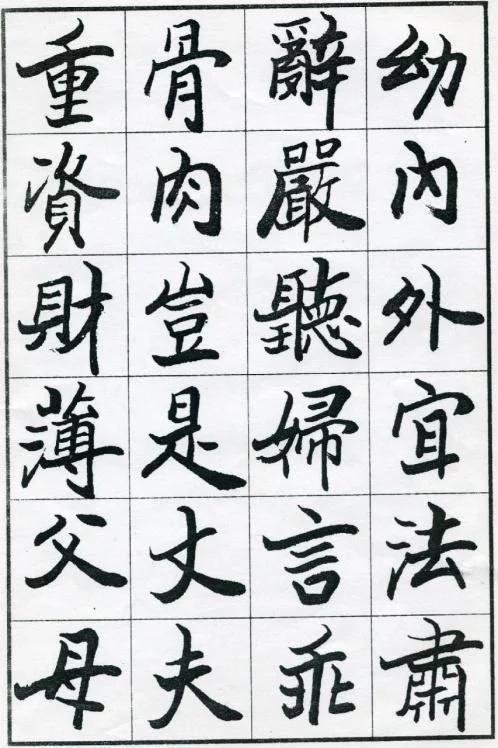 幼內外宜法肅
辭嚴聽婦言乖
骨肉豈是丈夫
重資財薄父母